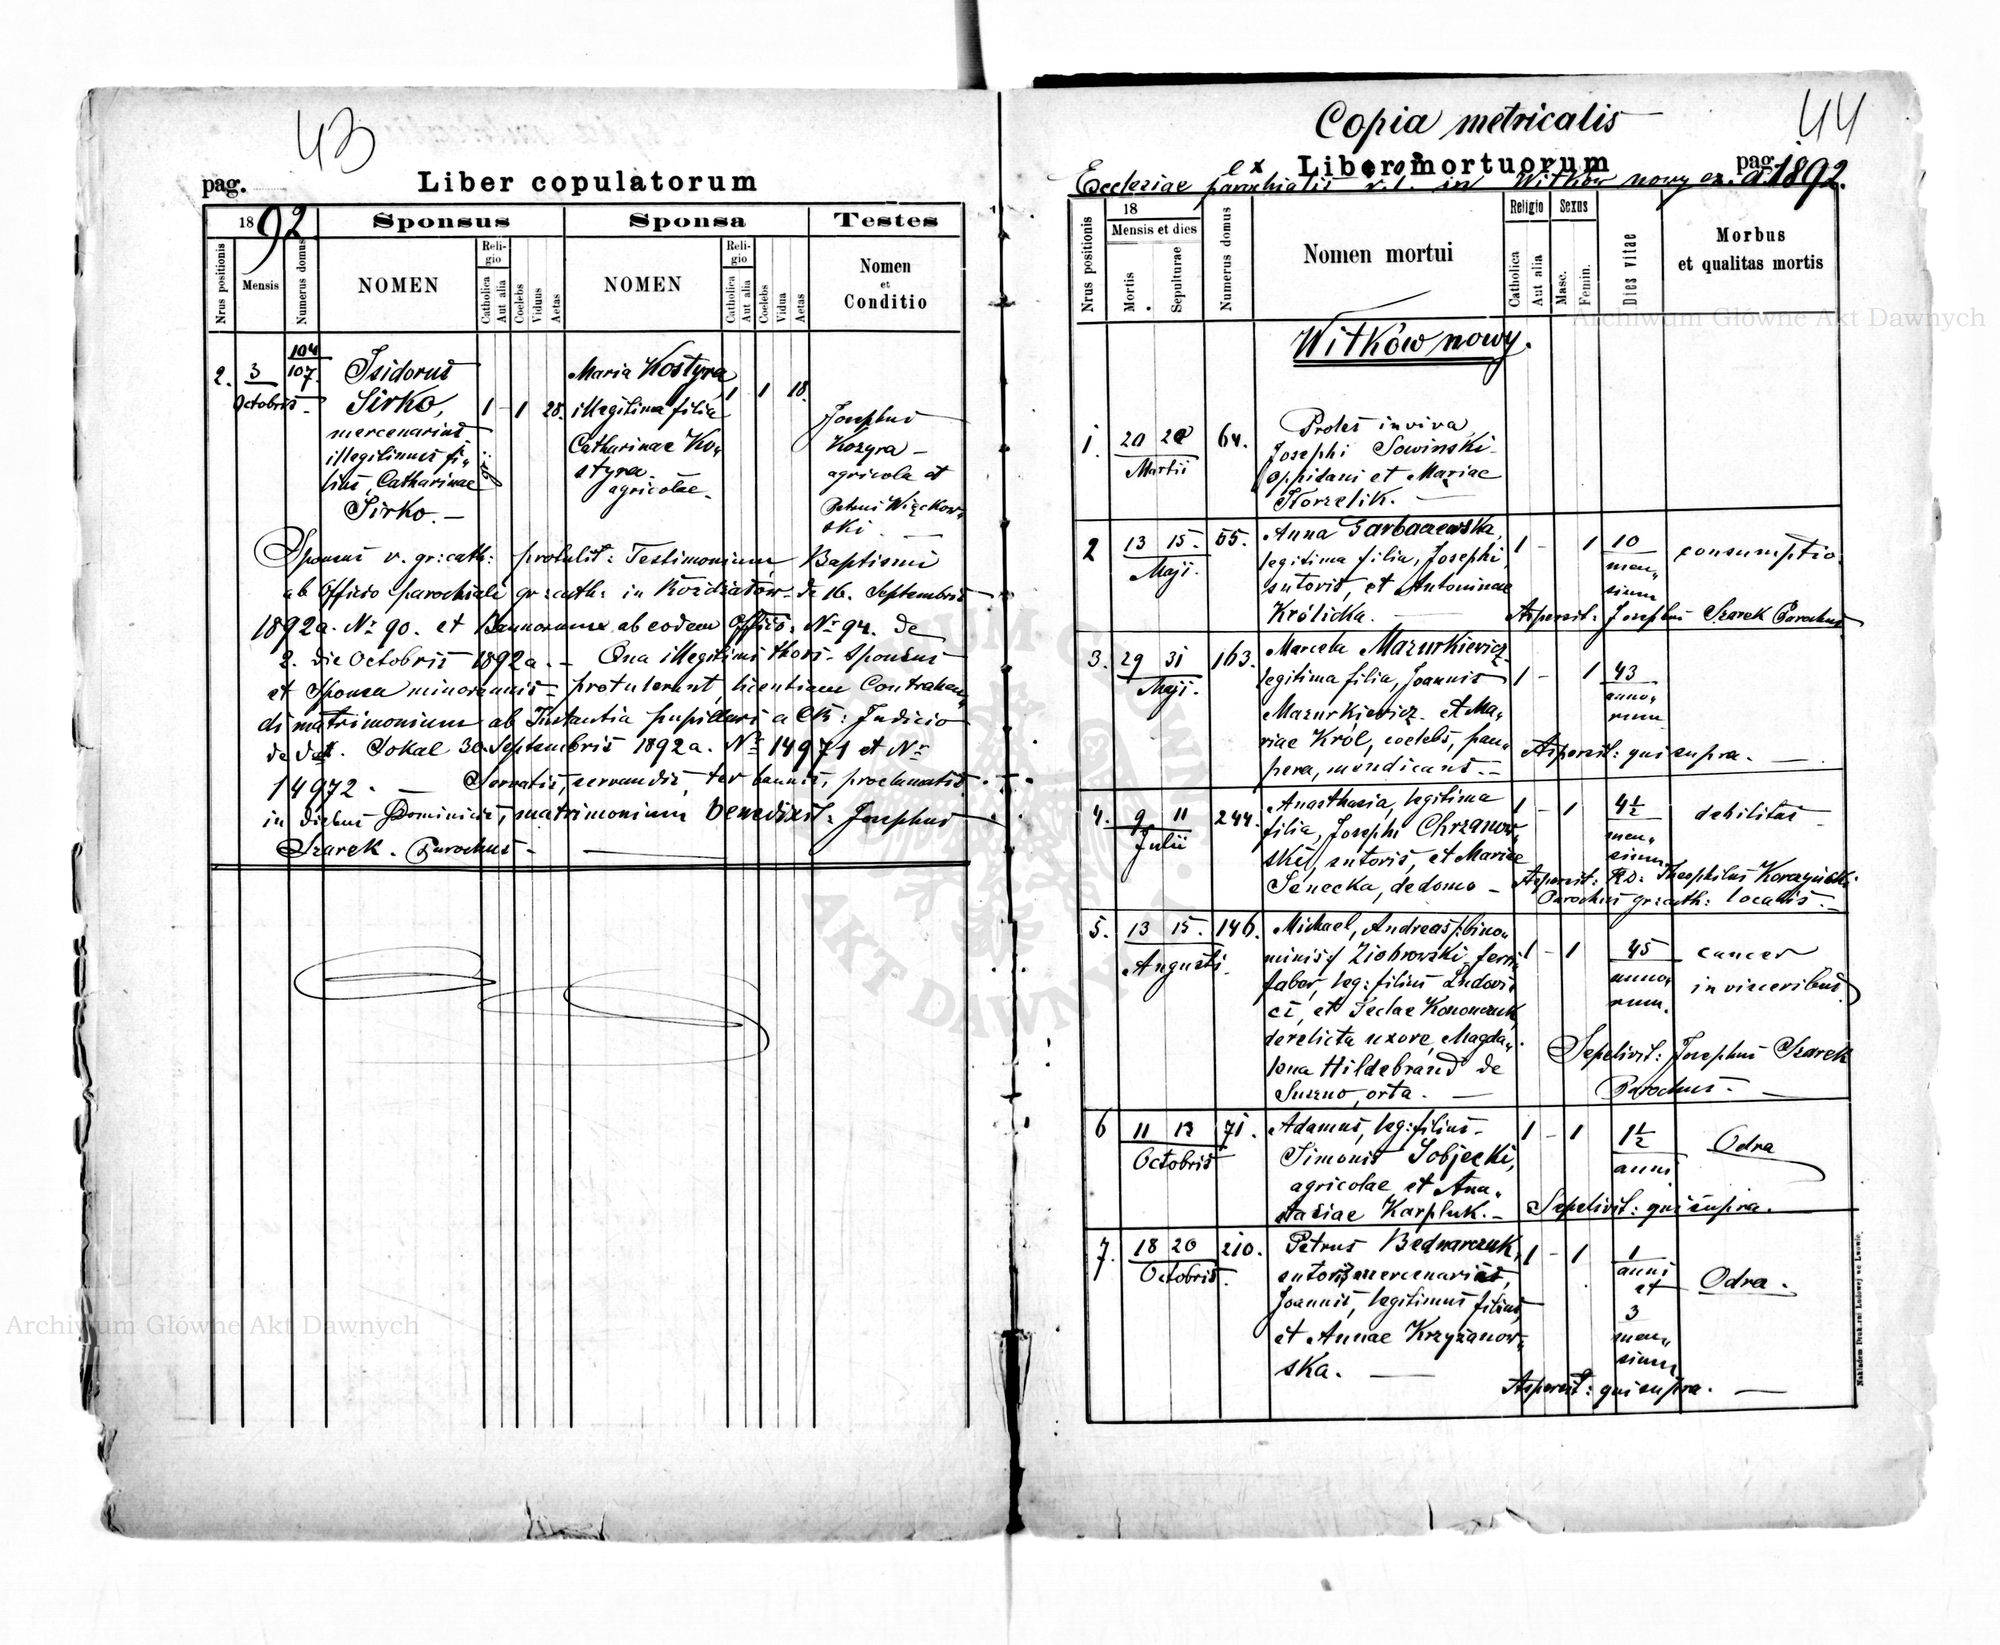 43
pag.
Liber copulatorum
1892
Sponsus
Sponsa
Testes
Nrus positionis
Mensis
Numerus domus
NOMEN
Religio
Catholica
Aut alia
Coelebs
Viduus
Aetas
NOMEN
Religio
Catholica
Aut alia
Coelebs
Vidua
Aetas
Nomen
et
Conditio
2.
3
Octobris
104
107.
Isidorus
Sirko,
mercenarius
illegitimus fi„
lius Catharinae
Sirko. —
1 - 1 28.
Maria Kostyra
illegitima filia
Catharinae Ko„
styra
agricolae.
1 - 1 18.
Josephus
Kozyra -
agricola et
Petrus Więckow„
ski
Sponsus r. gr: cath: protulit: Testimonium Baptismi
ab Officio parochiali gr: cath: in Rozdżałow de 16. Septembris
1892a. Nr 90. et Bannorum ab eodem Officio, Nr 94. de
2. die Octobris 1892a. - Qua illegitimi thori - Sponsus
et Sponsa minorennis - protulerunt, licentiam Contrahen„
di matrimonium ab Instantia pupillari a CK: Judicio
de dat. Sokal 30 Septembris 1892a. Nr 14971 et Nr
14972. — Servatis, servandis, ter bannis, proclamatis
in diebus Dominicis, matrimonium benedixit: Josephus
Szarek. Parochus. -
44
Copia metricalis
ex Libro mortuorum
pag.
Ecclesiae parochialis r. l. in Witków nowy ex. a. 1892.
Nrus positionis
18
Mensis et dies
Mortis
Sepulturae
Numerus domus
Nomen mortui
Religio
Catholica
Aut alia
Sexus
Masc.
Femin.
Dies vitae
Morbus
et qualitas mortis
Witków nowy.
1.
20 20
Martii
64.
Proles inviva
Josephi Sowinski
oppidani et Mariae
Korzelik. —
2
13 15.
Maji.
55.
Anna Garbaczewska,
legitima filia, Josephi,
sutoris, et Antoninae
Królicka. —
1 - 1
10
men„
sium
consumptio.
Aspersit: Josephus Szarek Parochus
3.
29 31
Maji.
163.
Marcela Mazurkiewicz
legitima filia, Joannis
Mazurkiewicz. et Ma„
riae Król, coelebs, pau„
pera, mendicans. -
1 - 1
43
anno„
rum
Aspersit: qui supra. —
4.
9 11
Julii
244.
Anasthasia, legitima
filia, Josephi Chrzanow„
ski, sutoris, et Mariae
Senecka, de domo -
1 - 1
4½
men„
sium
debilitas
Aspersit: RD: Theophilus Korczyński
Parochus gr: cath: localis. -
5.
13 15.
Augusti.
146.
Michael, Andreas /:bino„
minis:/ Ziobrowski, ferri„
faber, leg: filius Ludovi„
ci, et Teclae Kononczuk,
derelicta uxore, Magda„
lena Hildebrand de
Suszno, orta. —
1 - 1
45
anno„
rum.
cancer
in visceribus
Sepelivit: Josephus Szarek
Parochus. —
6
11 13
Octobris
71.
Adamus, leg: filius
Simonis Sobjecki,
agricolae et Ana„
stasiae Karpluk. -
1 - 1
1½
anni
Odra
Sepelivit: qui supra.
7.
18 20
Octobris.
210.
Petrus Bednarczuk,
sutoris mercenarius,
Joannis, legitimus filius,
et Annae Krzyżanow„
ska. —
1 - 1
1
anni
et
3
men„
sium
Odra.
Aspersit: qui supra. —
Nakładem Drukarni Ludowej we Lwowie.
Archiwum Główne Akt Dawnych
Archiwum Główne Akt Dawnych